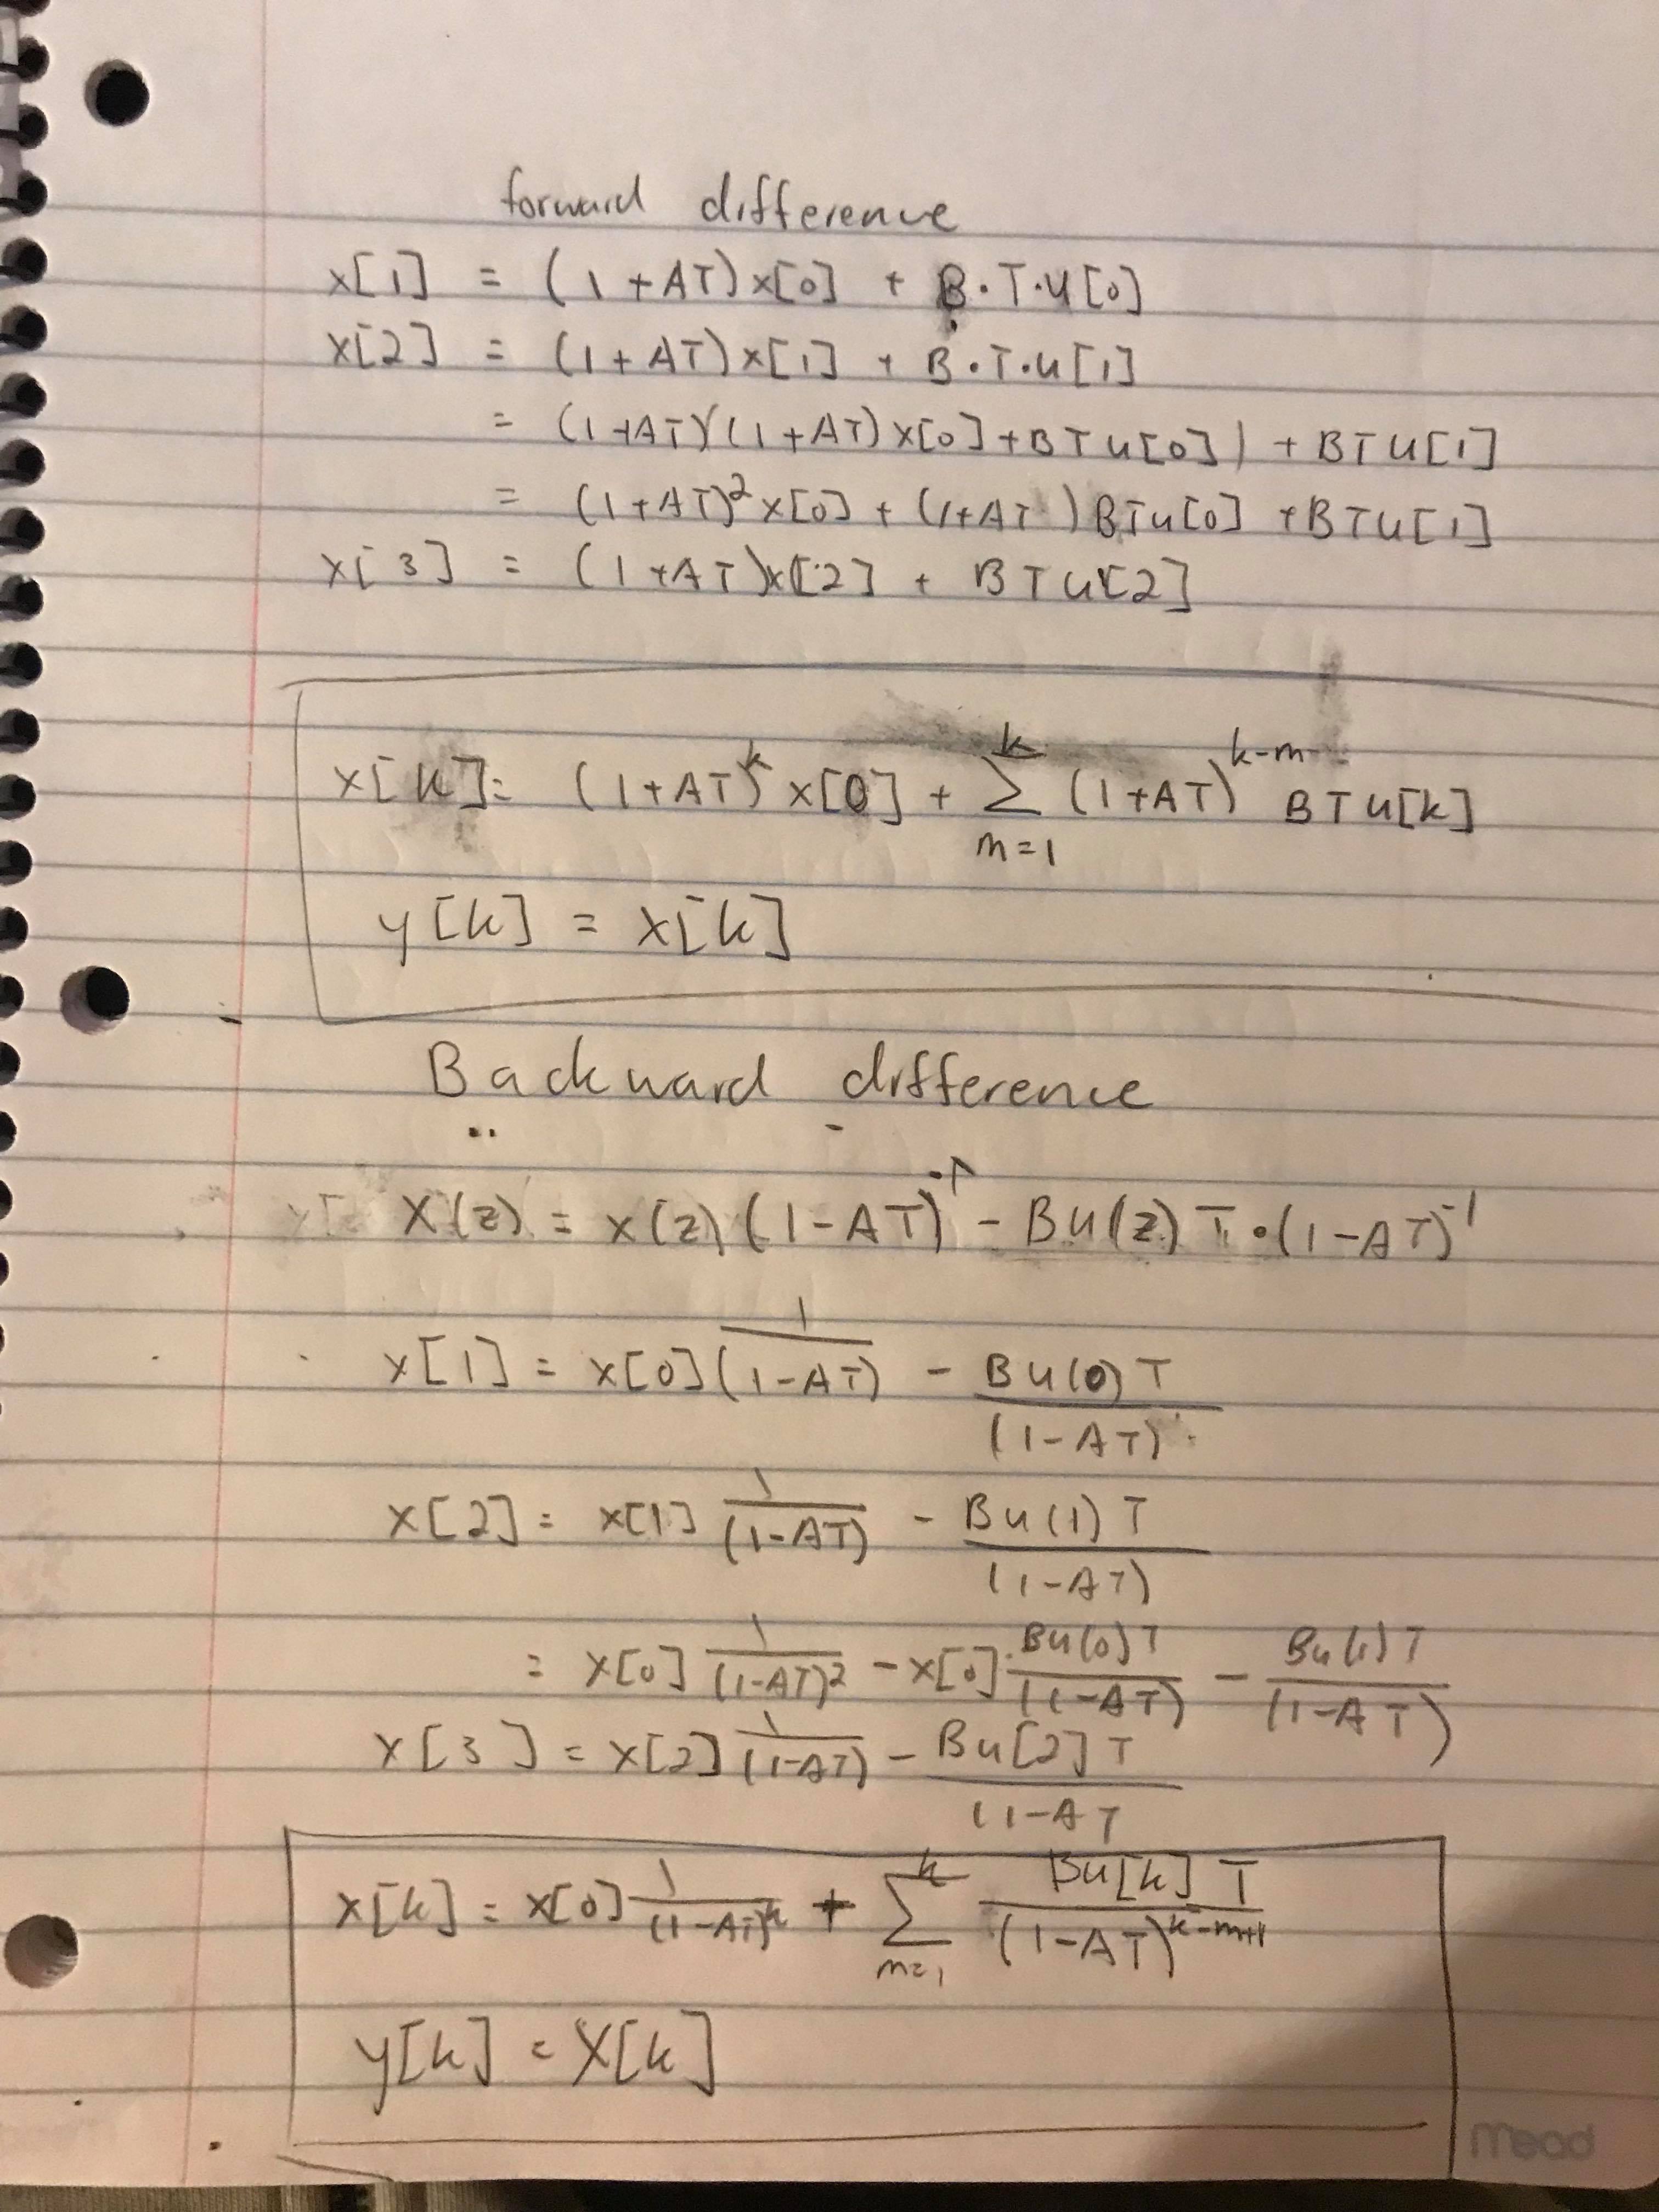 forward difference
x[1] = (1+AT)x[0] + B·T·u[0]
x[2] = (1+AT)x[1] + B·T·u[1]
= (1+AT)(1+AT)x[0]+BTu[0]) + BTU[1]
= (1+AT)²x[0] + (1+AT)BTu[0] + BTU[1]
x[3] = (1+AT)x[2] + BTu[2]
x[k] = (1+AT)^k x[0] + ∑_{m=1}^{k} (1+AT)^{k-m} BTU[k]
y[k] = x[k]
Backward difference
X(z) = x(z)(1-AT)^{-1} - Bu(z)T·(1-AT)^{-1}
x[1] = x[0] 1/(1-AT) - Bu(0)T/(1-AT)
x[2] = x[1] 1/(1-AT) - Bu(1)T/(1-AT)
= x[0] 1/(1-AT)² - x[0]·Bu(0)T/(1-AT) - Bu(1)T/(1-AT)
x[3] = x[2] 1/(1-AT) - Bu[2]T/(1-AT
x[k] = x[0] 1/(1-AT)^k + ∑_{m=1}^{k} Bu[k]T/(1-AT)^{k-m+1}
y[k] = X[k]
Mead